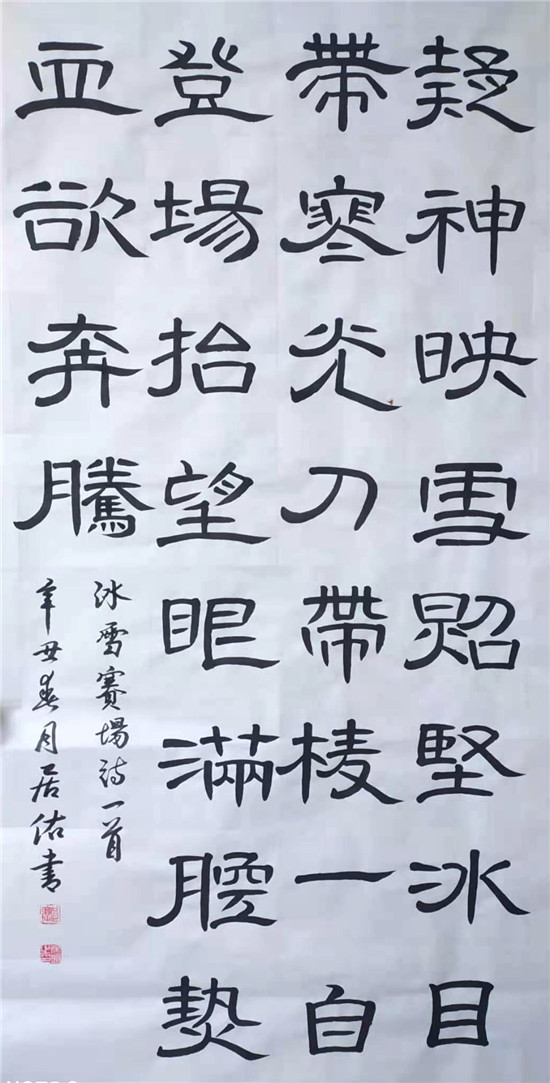 疑神映雪照堅冰目
帶寒光刀帶棱一白
登場抬望眼滿腔熱
血欲奔騰
冰雪賽場詩一首
辛丑春月居佑書